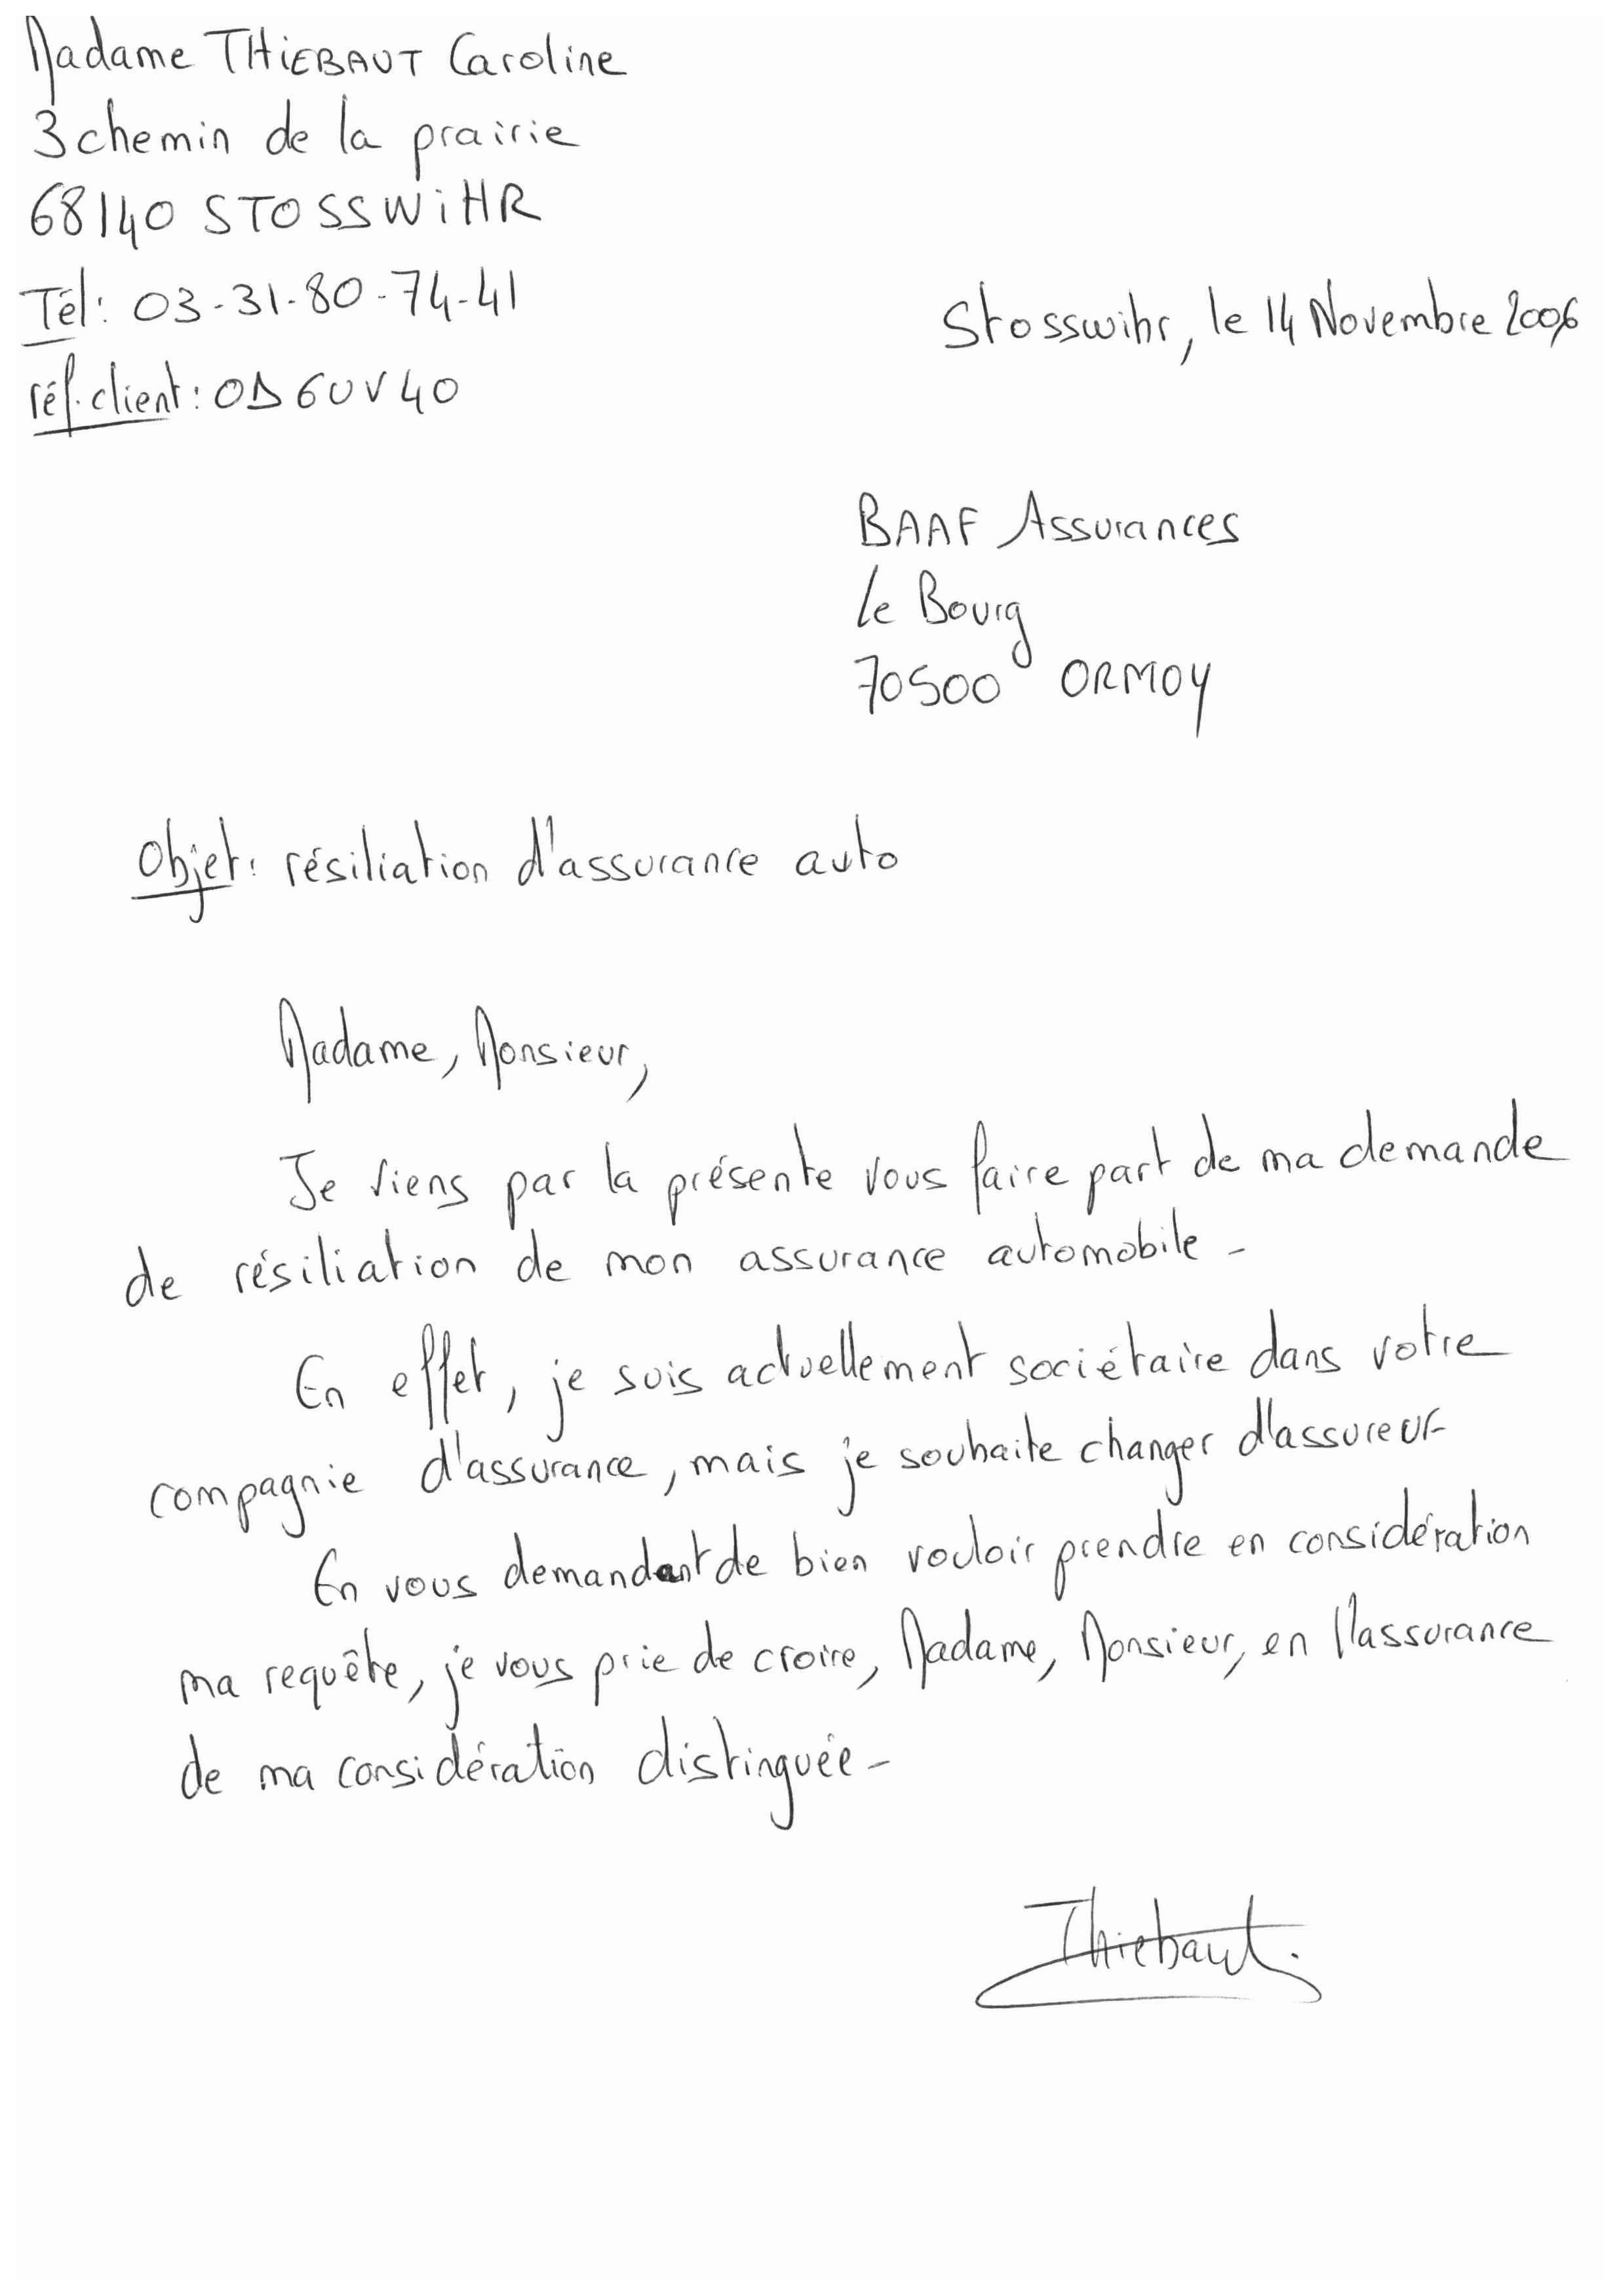 Madame THIEBAUT Caroline
3 chemin de la prairie
68140 STOSSWIHR
Tél: 03-31-80-74-41
Stosswihr, le 14 Novembre 2006
réf. client: OD6UV40
BAAF Assurances
le Bourg
70500 ORMOY
Objet: résiliation d'assurance auto
Madame, Monsieur,
Je viens par la présente vous faire part de ma demande
de résiliation de mon assurance automobile -
En effet, je suis actuellement sociétaire dans votre
compagnie d'assurance, mais je souhaite changer d'assureur-
En vous demandant de bien vouloir prendre en considération
ma requête, je vous prie de croire, Madame, Monsieur, en l'assurance
de ma considération distinguée -
Thiebaut.